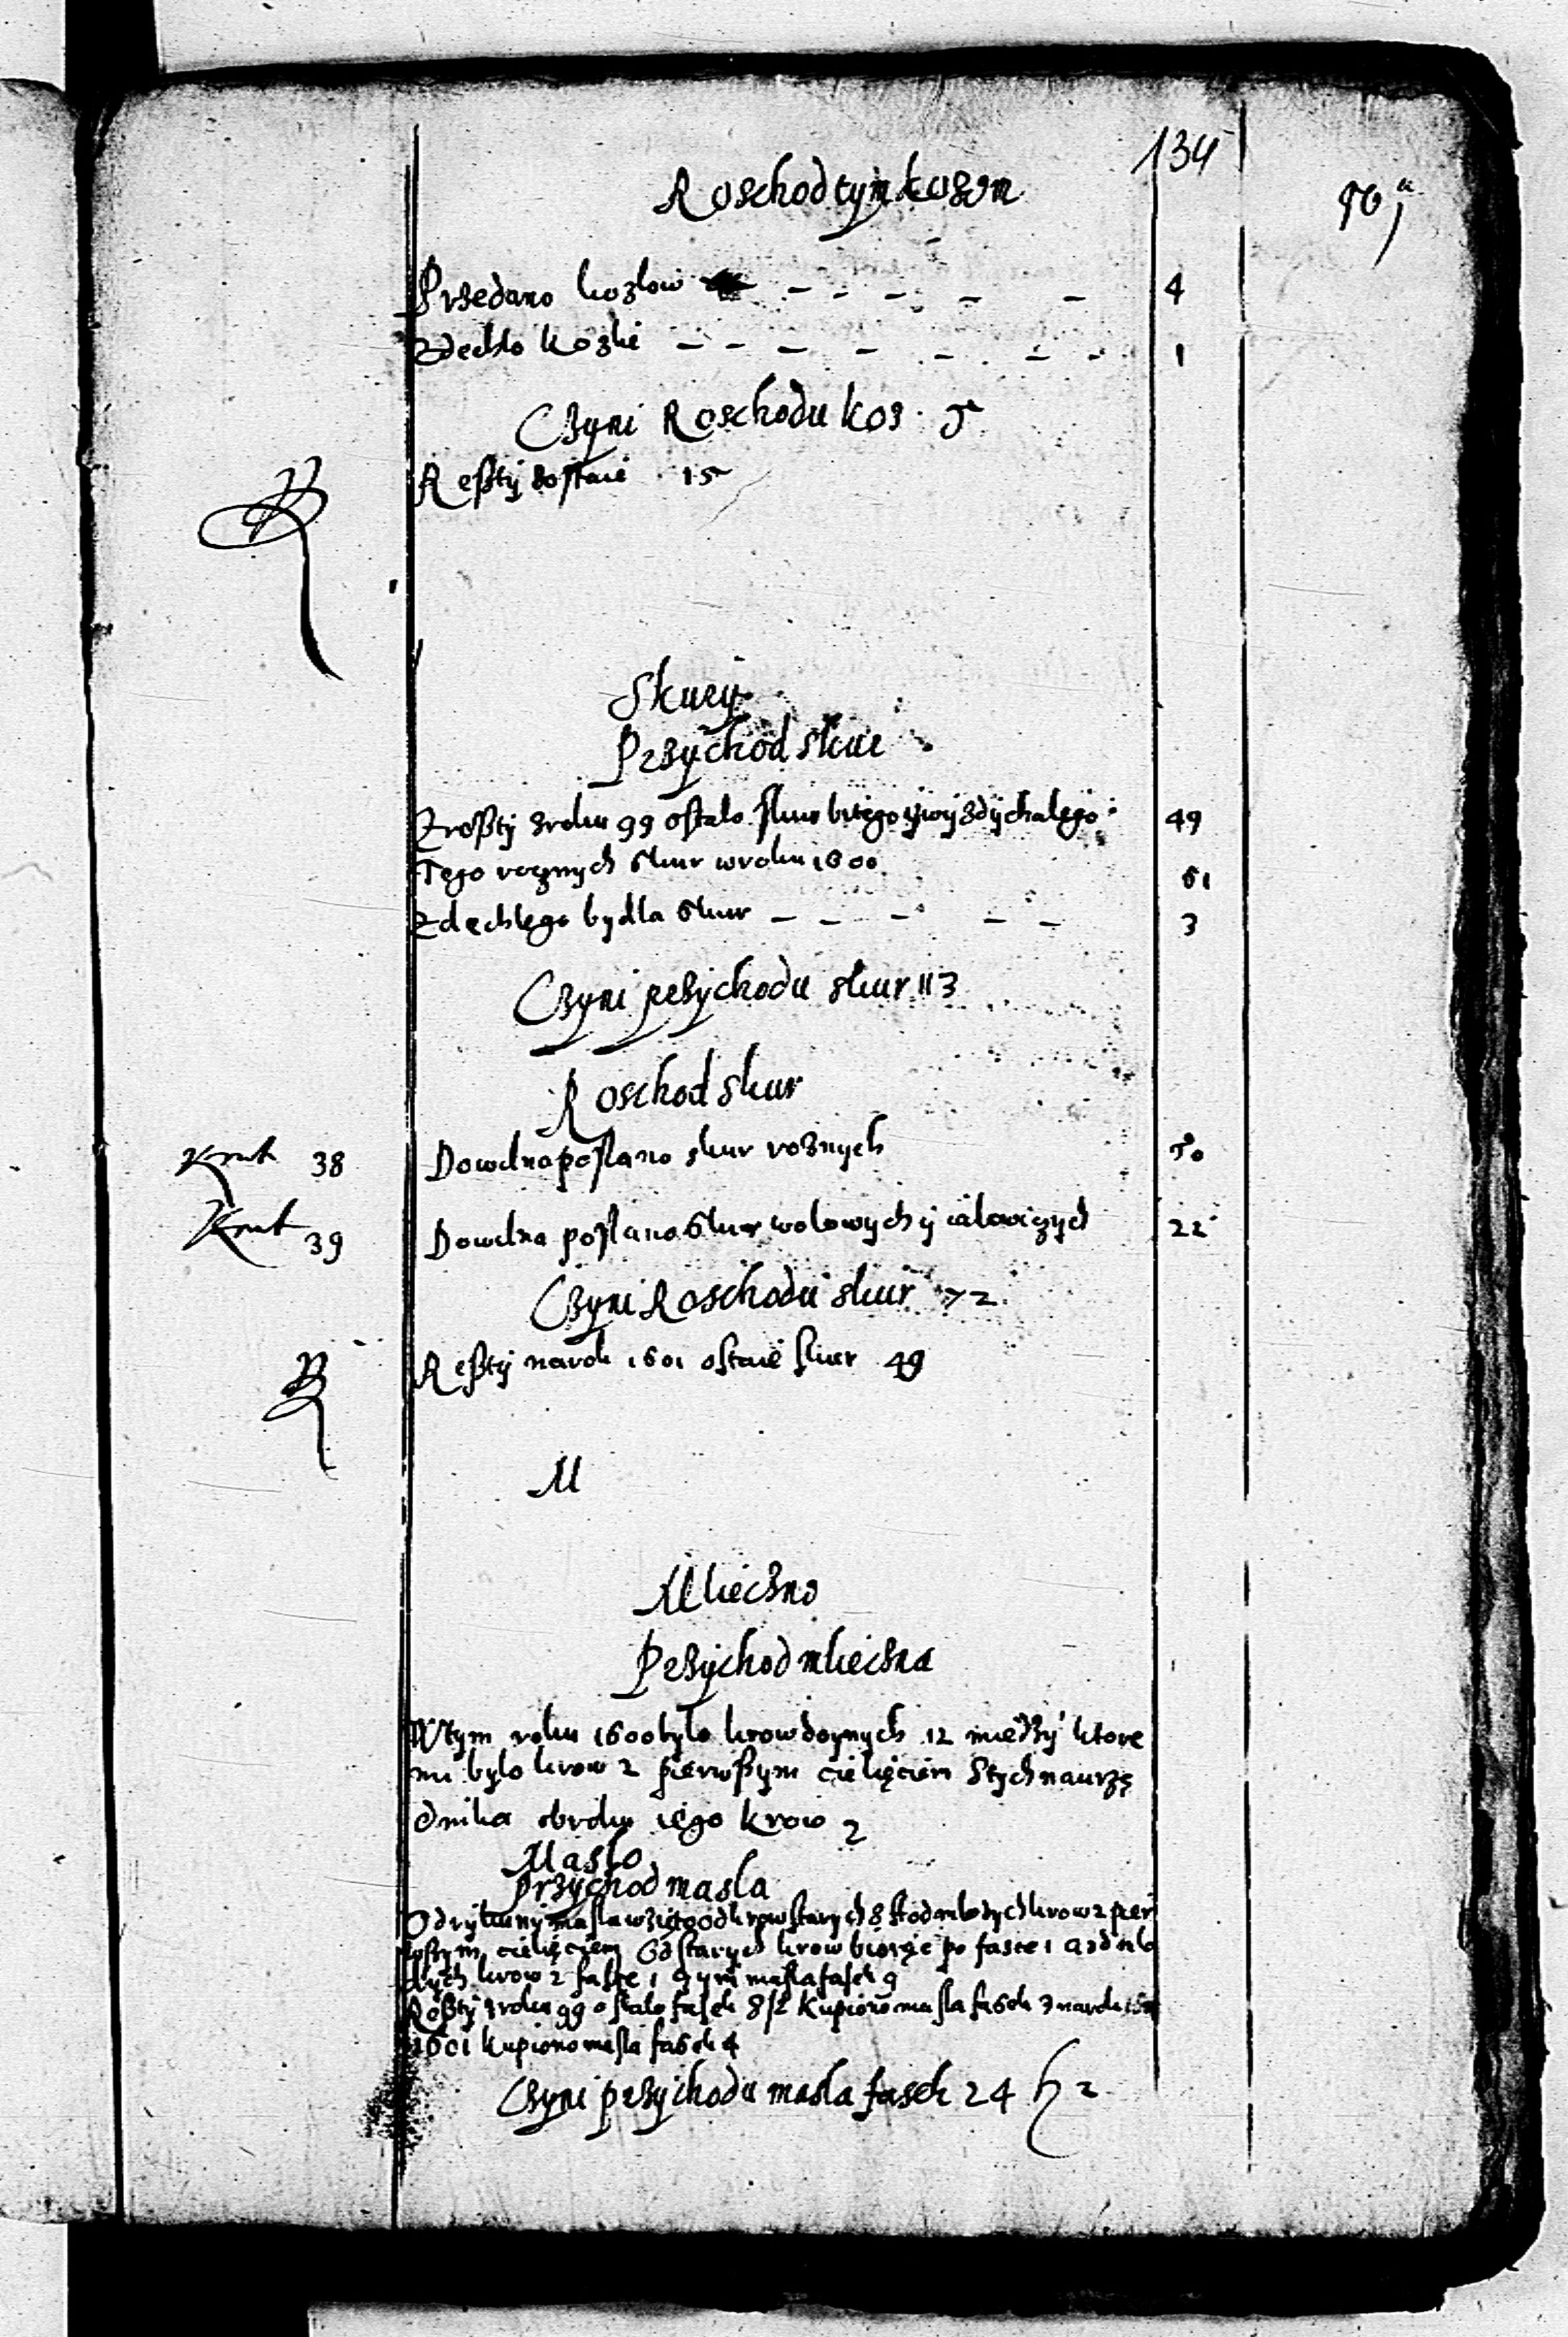 134
Roschod tym kosom
Przedano kozłow 4
Zdechło kozłie 1
Czyni Roschodu kos 5
Resty zostaie 15
Skury
Przychod skur
Z resty z roku 99 ostało skur bitego y wyzdychałego 49
Tego rocznych skur w roku 1600 61
Zdechłego bydła skur 3
Czyni przychodu skur 113
Roschod skur
Kwit 38 Do Wilna posłano skur roznych 50
Kwit 39 Do Wilna posłano skur wołowych y iałowiczych 22
Czyni Roschodu skur 72
Resty na rok 1601 ostaie skur 49
M
Mlieczno
Przychod mlieczna
W tym roku 1600 było krow doynych 12 miedzy ktore
mi było krow 2 pierwszym cielięciem z tych na urzę
dnika obroku iego krow 2
Masło
Przychod masla
masla wzięto od krow starych 8 y od młodych krow 2 pier
wszym cielięciem Od starych krow biorąc po fasce 1 a od mło
dych krow 2 faske 1 czyni masla fasek 9
Resty z roku 99 ostało fasek 8 1/2 Kupiono masla fasek 3 na rok
1601 kupiono masla fasek 4
Czyni przychodu masla fasek 24 1/2